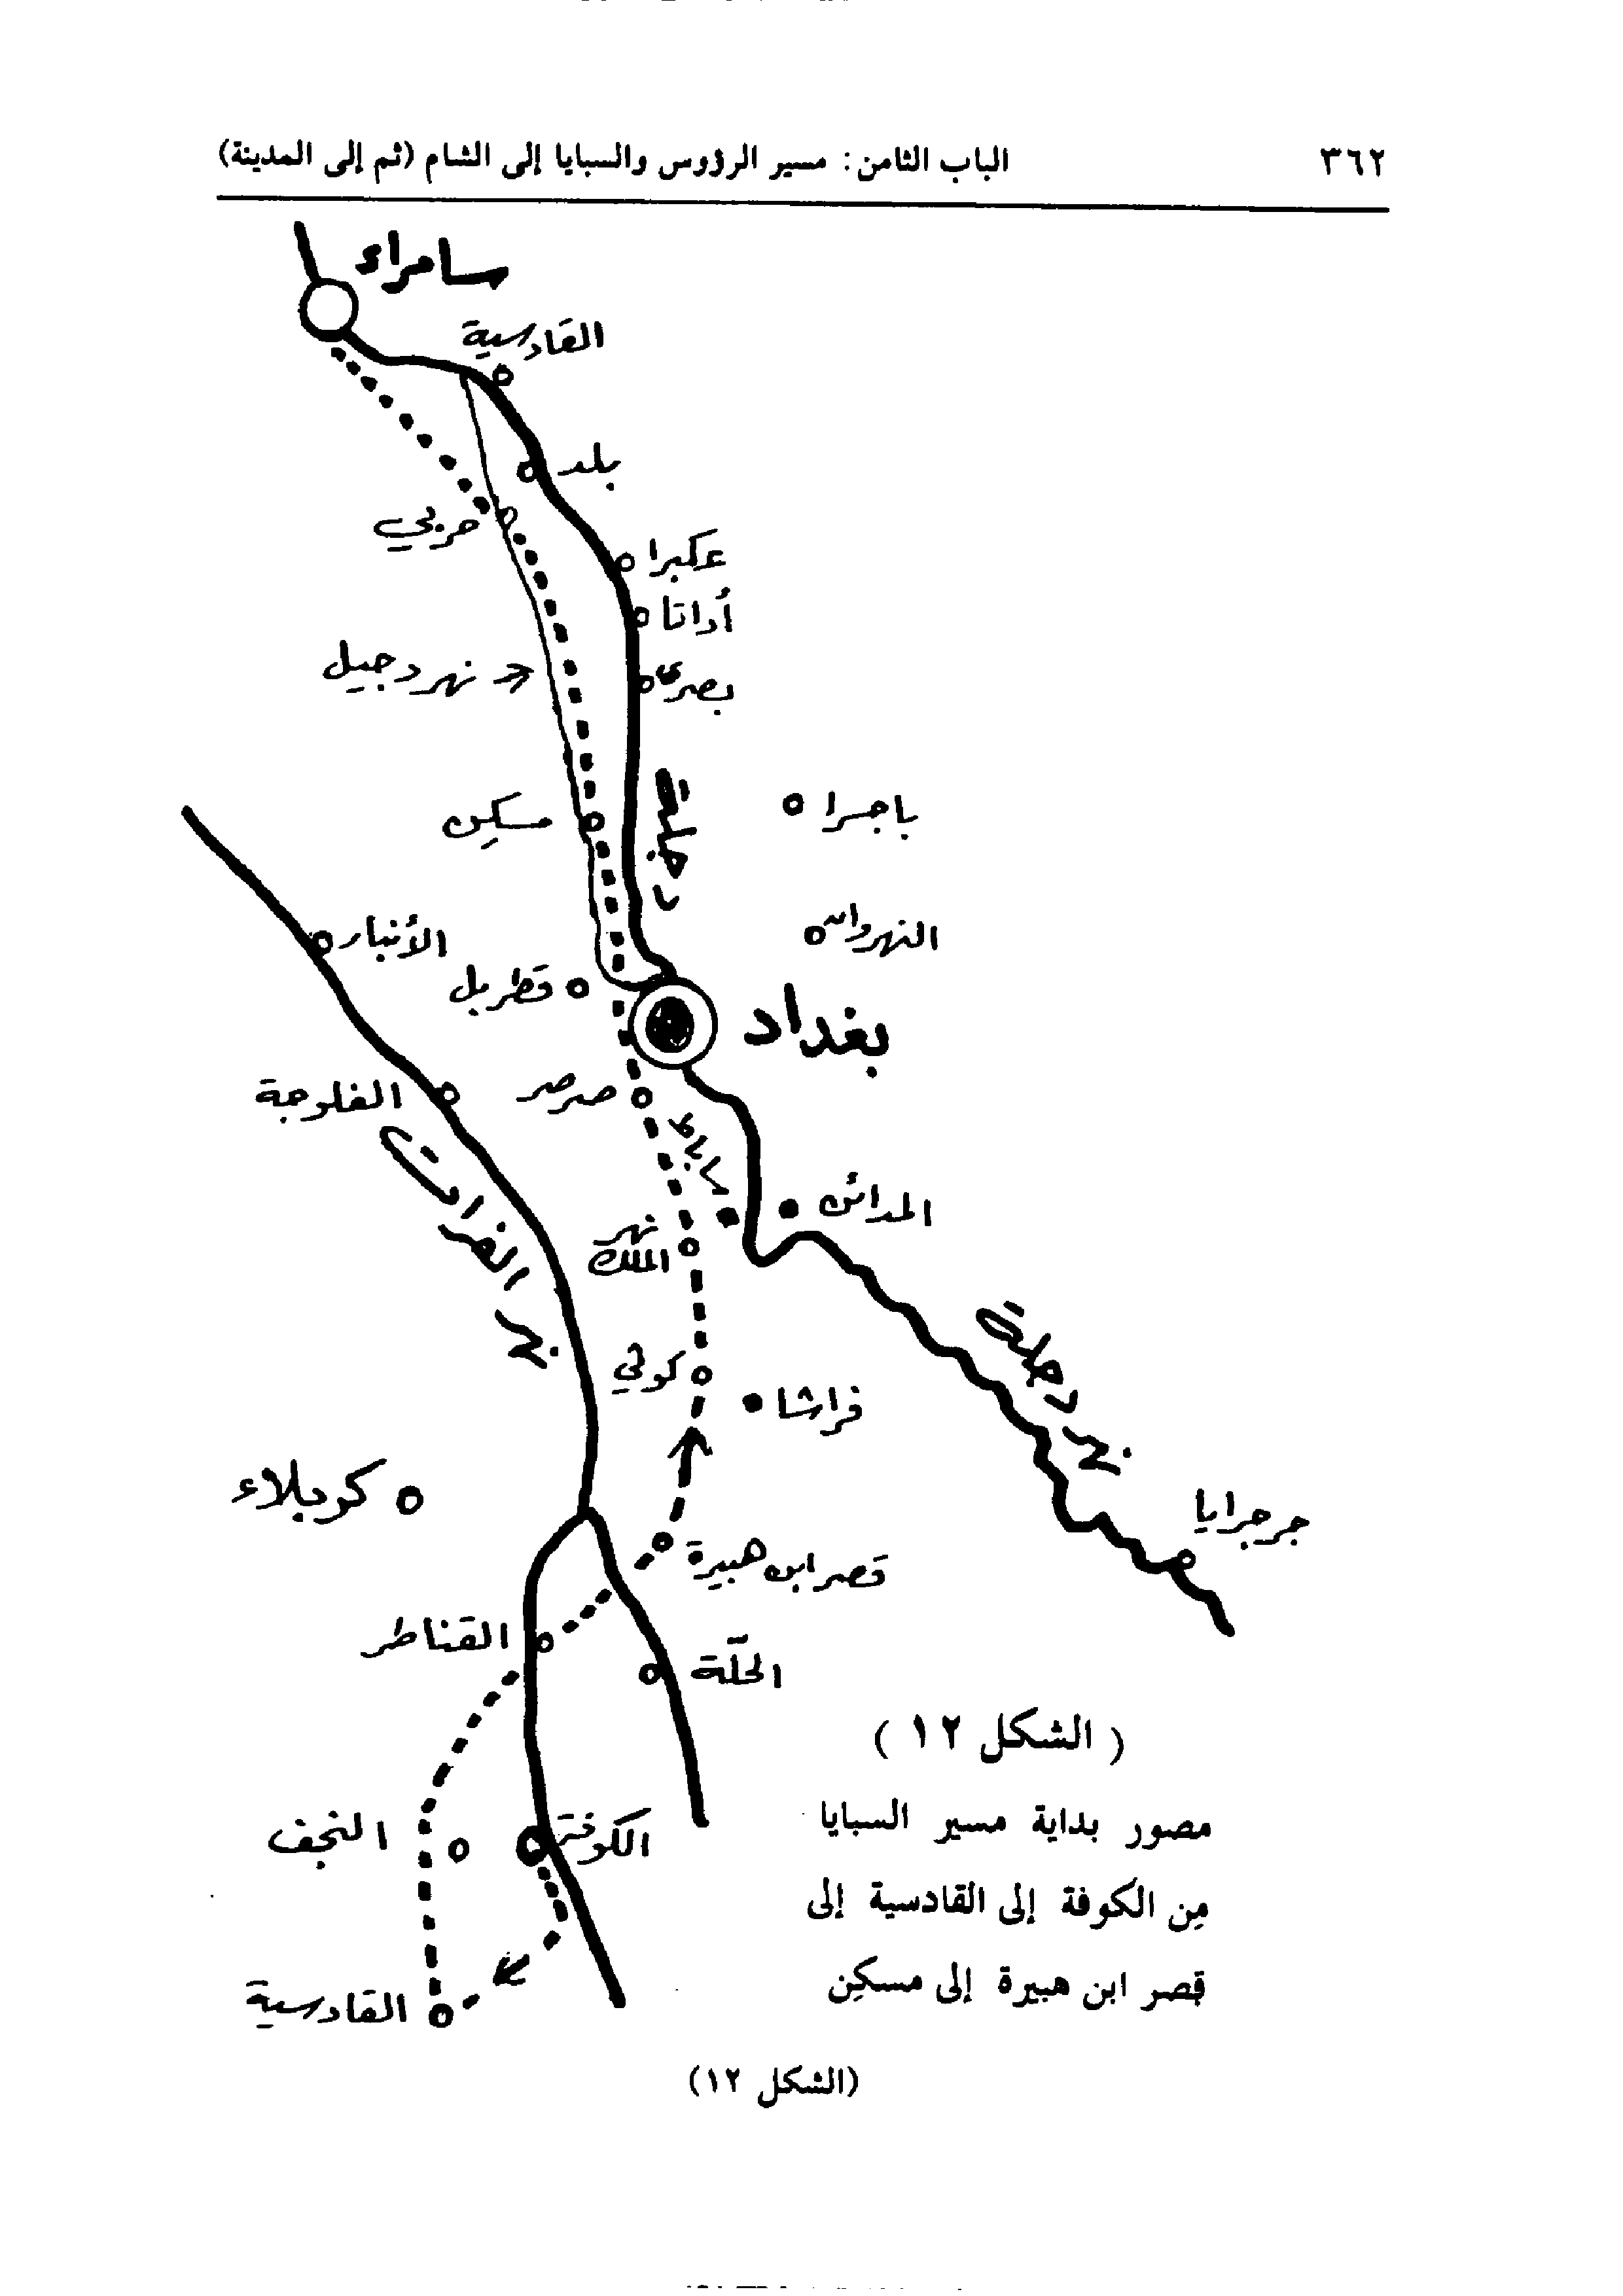 ٣٦٢
الباب الثامن: مسير الرؤوس والسبايا إلى الشام (ثم إلى المدينة)
سامراء
القادسية
بلد
حربي
عكبرا
أوانا
بصرى
نهر دجيل
دجلة
باجسرا
مسكِن
النهروان
الأنبار
قطربل
بغداد
الفلوجة
صرصر
ساباط
المدائن
نهر
الملك
نهر الفرات
نهر دجلة
كوثي
فراشا
كربلاء
جرجرايا
قصر ابن هبيرة
القناطر
الحلّة
النجف
الكوفة
القادسية
( الشكل ١٢ )
مصور بداية مسير السبايا
مِن الكوفة إلى القادسية إلى
قصر ابن هبيرة إلى مسكِن
(الشكل ١٢)